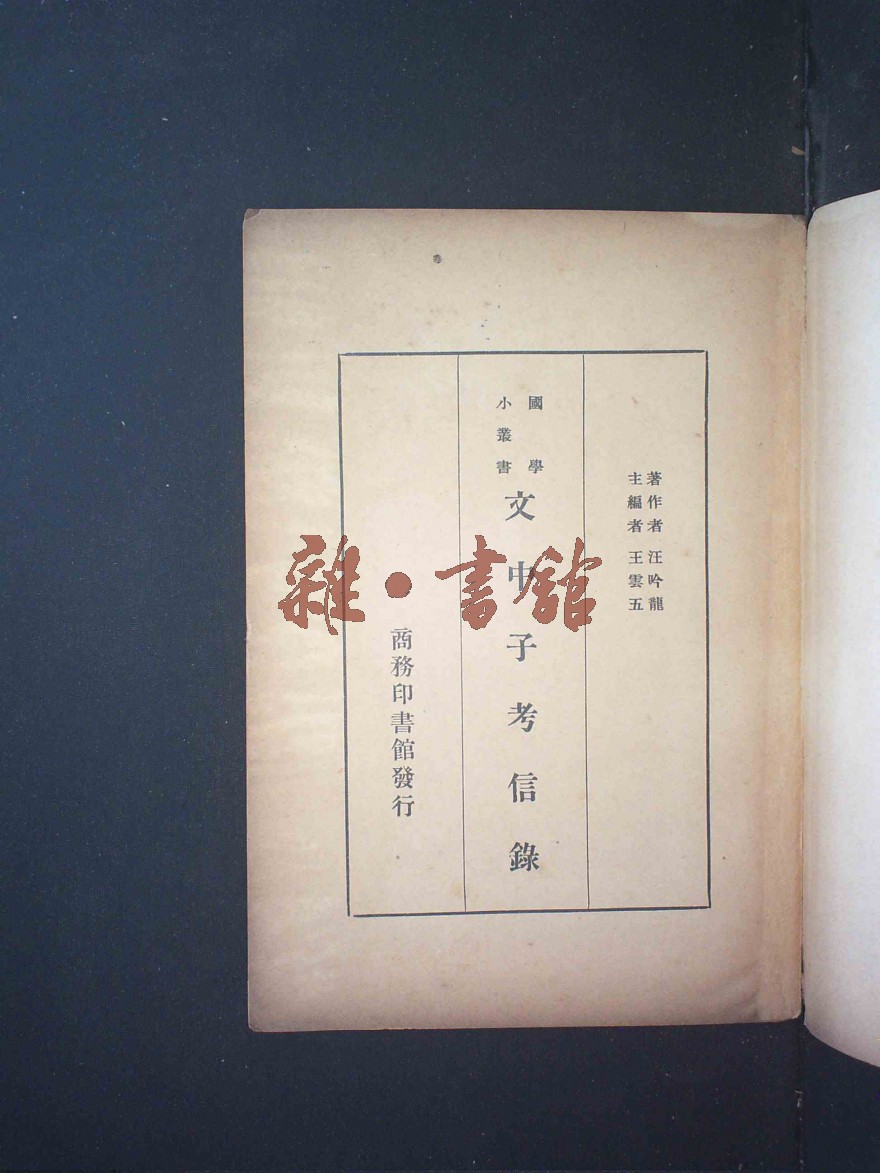 著作者 汪吟龍
主編者 王雲五
國學
小叢書
文中子考信錄
商務印書館發行
雜·書館